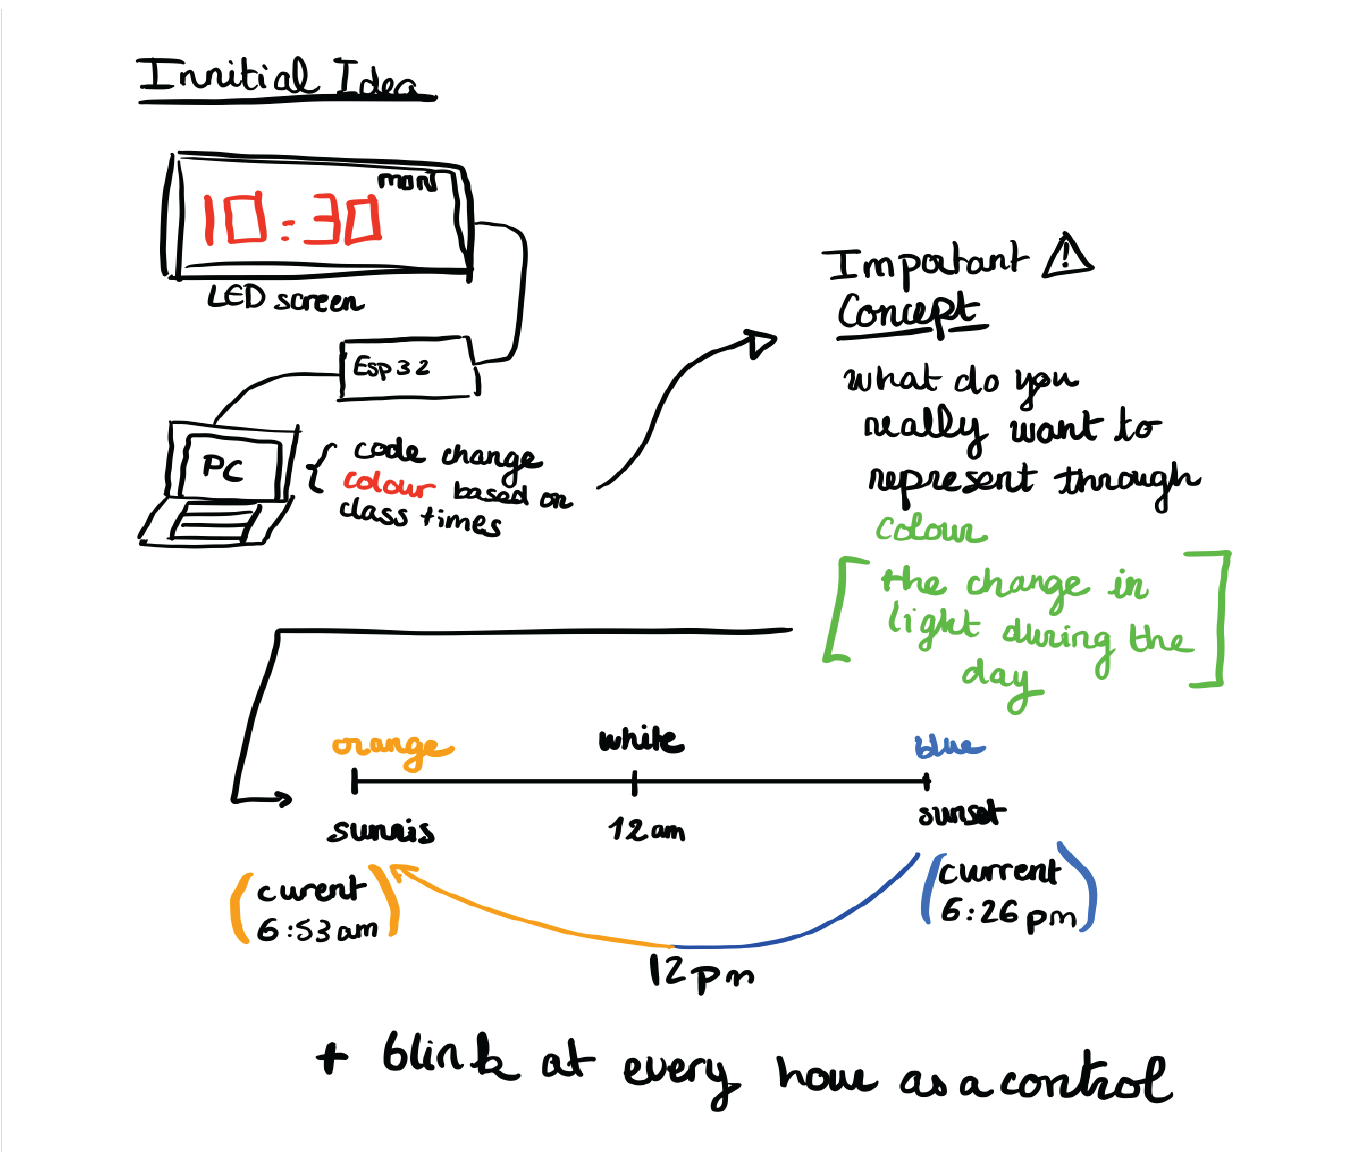 Innitial Idea
MON
10:30
LED screen
Esp32
PC
code change
colour based on
class times
Important
Concept
what do you
really want to
represent through
colour
the change in
light during the
day
orange white blue
sunris 12am sunset
(curent
6:53am)
(current
6:26pm)
12pm
+ blink at every hour as a control